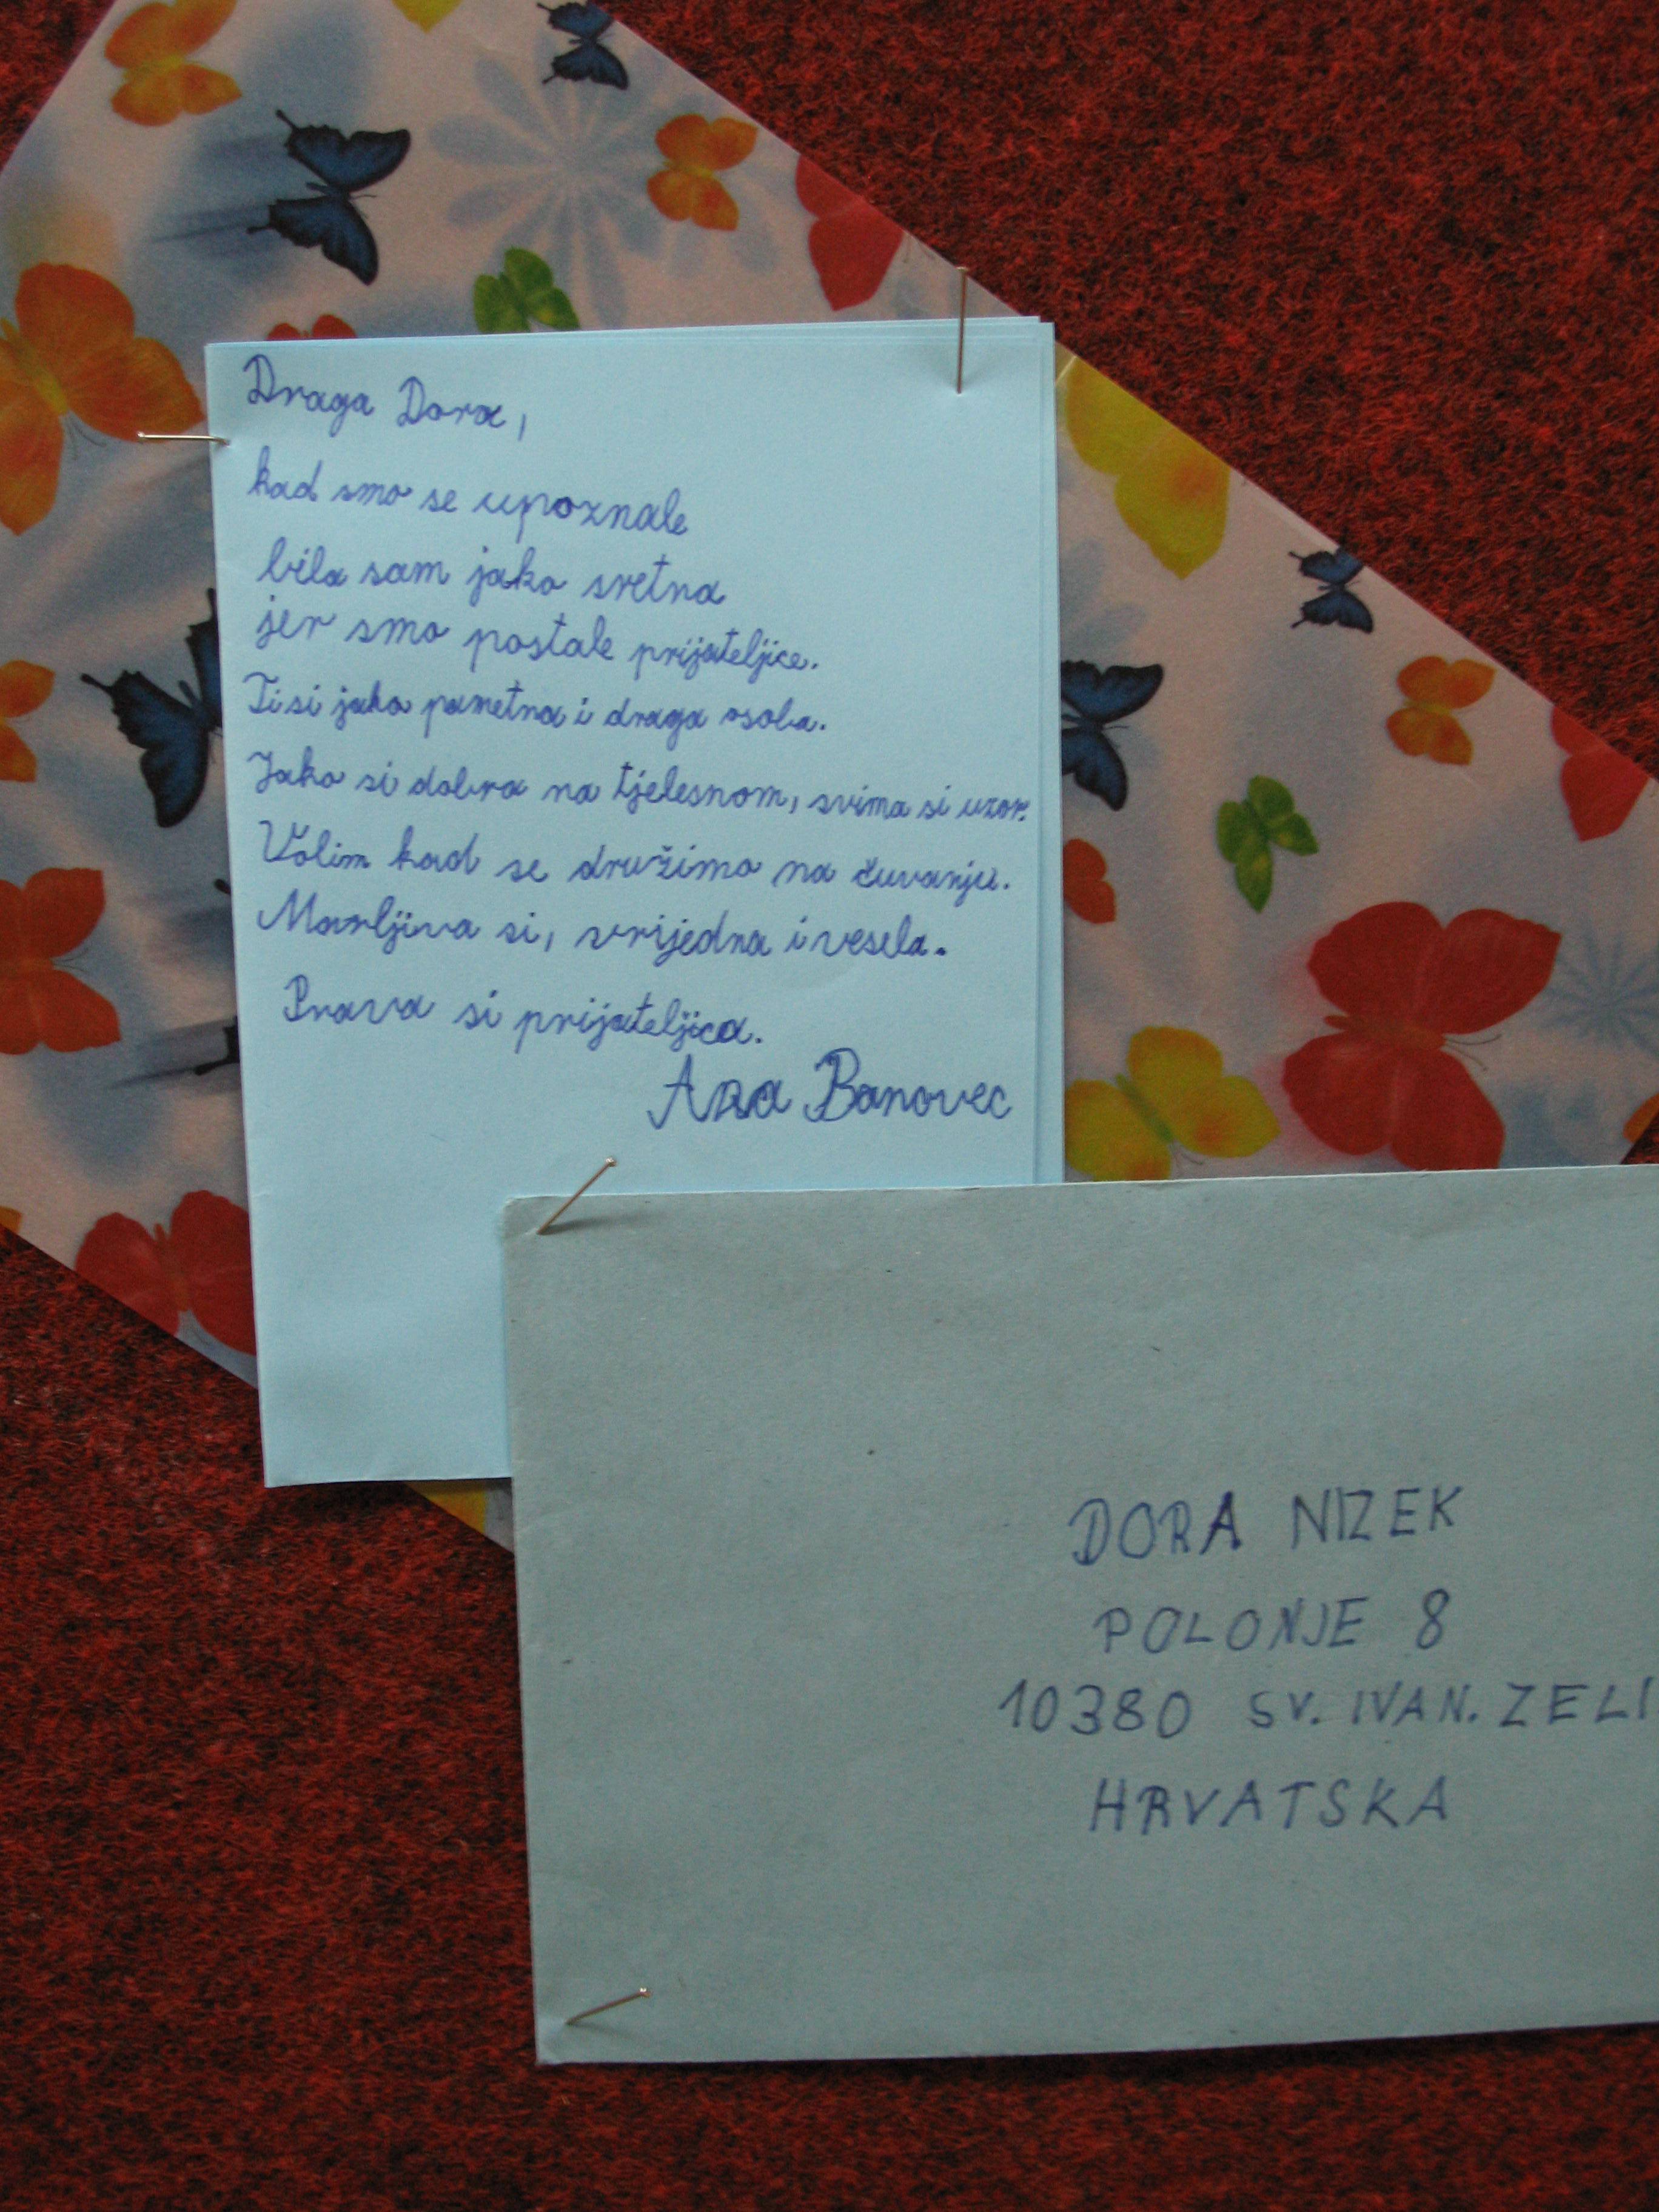 Draga Dora,
kad smo se upoznale
bila sam jako sretna
jer smo postale prijateljice.
Ti si jako pametna i draga osoba.
Jako si dobra na tjelesnom, svima si uzor.
Volim kad se družimo na čuvanju.
Marljiva si, vrijedna i vesela.
Prava si prijateljica.
Ana Banovec
DORA NIZEK
POLONJE 8
10380 SV. IVAN. ZELI
HRVATSKA